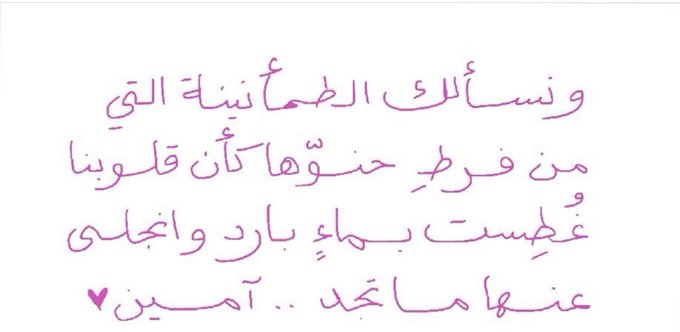 ونسألك الطمأنينة التي
من فرطِ حنوّها كأن قلوبنا
غُطِست بماءٍ بارد وانجلى
عنها ما تجد .. آمين♥